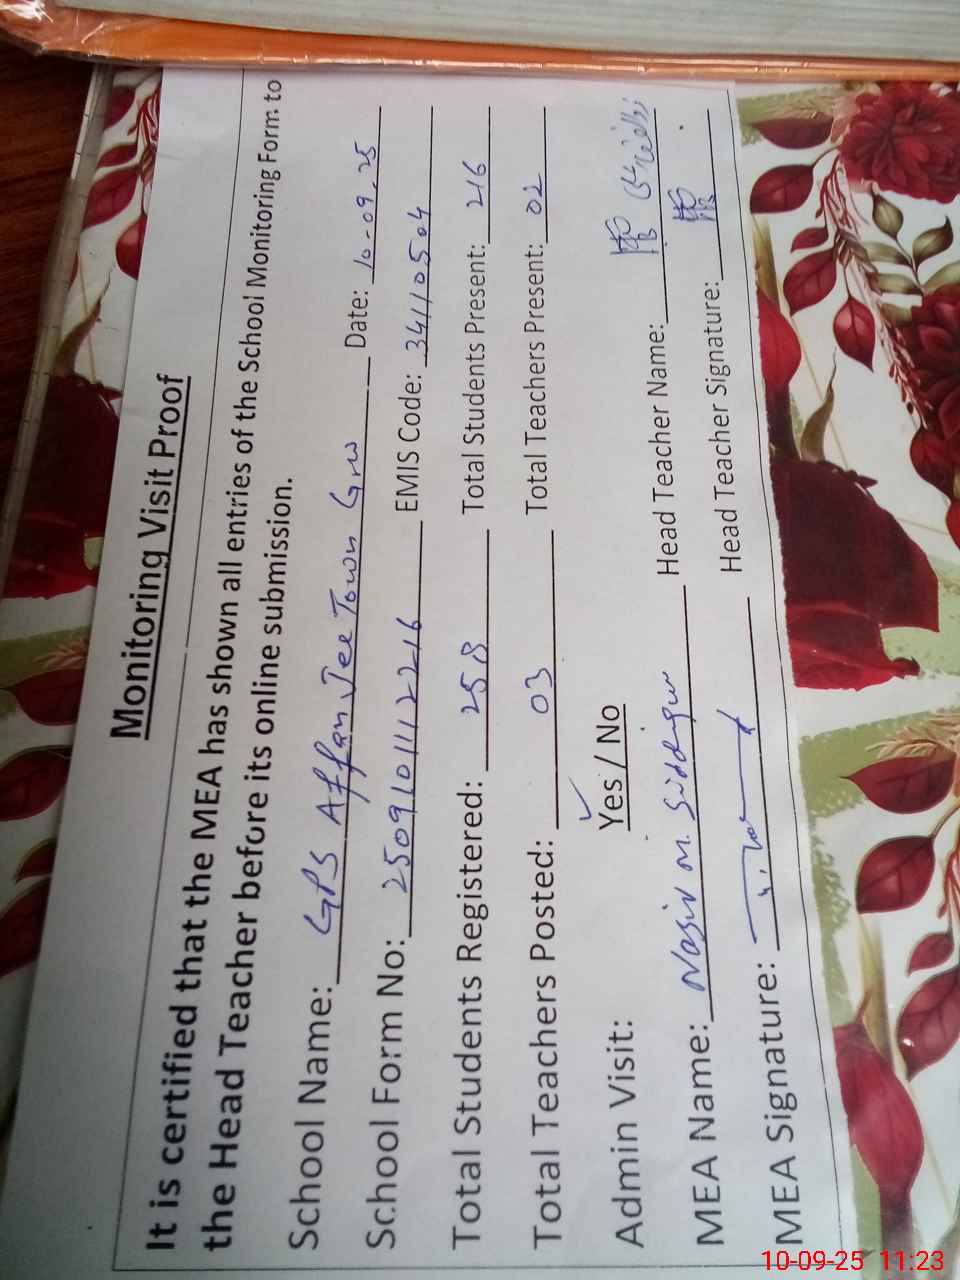 Monitoring Visit Proof
It is certified that the MEA has shown all entries of the School Monitoring Form to
the Head Teacher before its online submission.
School Name: GPS Affan Jee Town Grw Date: 10-09-25
School Form No: 25091011122216 EMIS Code: 34110504
Total Students Registered: 258 Total Students Present: 216
Total Teachers Posted: 03 Total Teachers Present: 02
Admin Visit: Yes / No
MEA Name: Nasir M. Siddiqui Head Teacher Name:
MEA Signature: Head Teacher Signature:
10-09-25 11:23